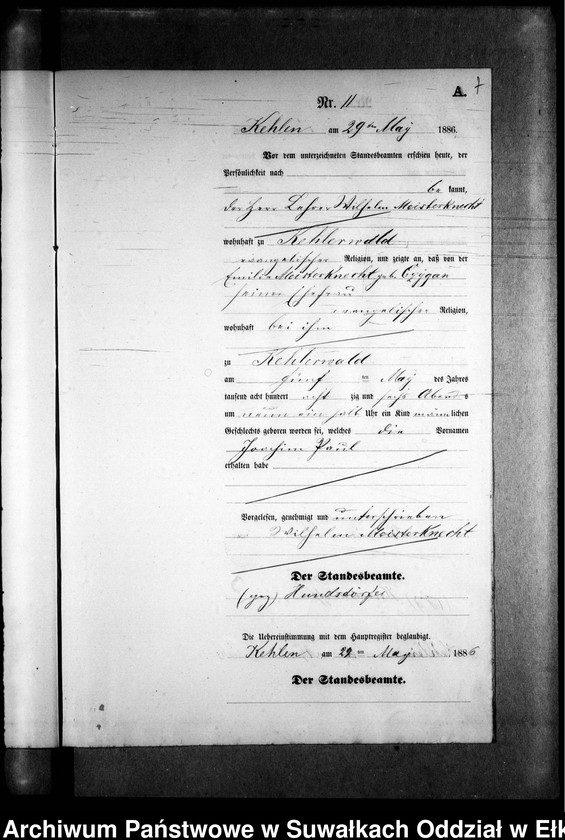 A. 7
Nr. 11
Kehlen am 29ten May 1886.
Vor dem unterzeichneten Standesbeamten erschien heute, der
Persönlichkeit nach
be kannt,
der Herr Lehrer Wilhelm Meisterknecht
wohnhaft zu Kehlerwald
evangelischer Religion, und zeigte an, daß von der
Emilie Meisterknecht geb. Czygan
seiner Ehefrau
evangelischer Religion,
wohnhaft bei ihm
zu Kehlerwald
am fünf ten May des Jahres
tausend acht hundert acht zig und sechs Abends
um neun ein halb Uhr ein Kind männlichen
Geschlechts geboren worden sei, welches die Vornamen
Joachim Paul
erhalten habe
Vorgelesen, genehmigt und unterschrieben
Wilhelm Meisterknecht
Der Standesbeamte.
(gez) Hundsdörfer
Die Uebereinstimmung mit dem Hauptregister beglaubigt.
Kehlen am 29ten May 1886
Der Standesbeamte.
Archiwum Państwowe w Suwałkach Oddział w Ełk